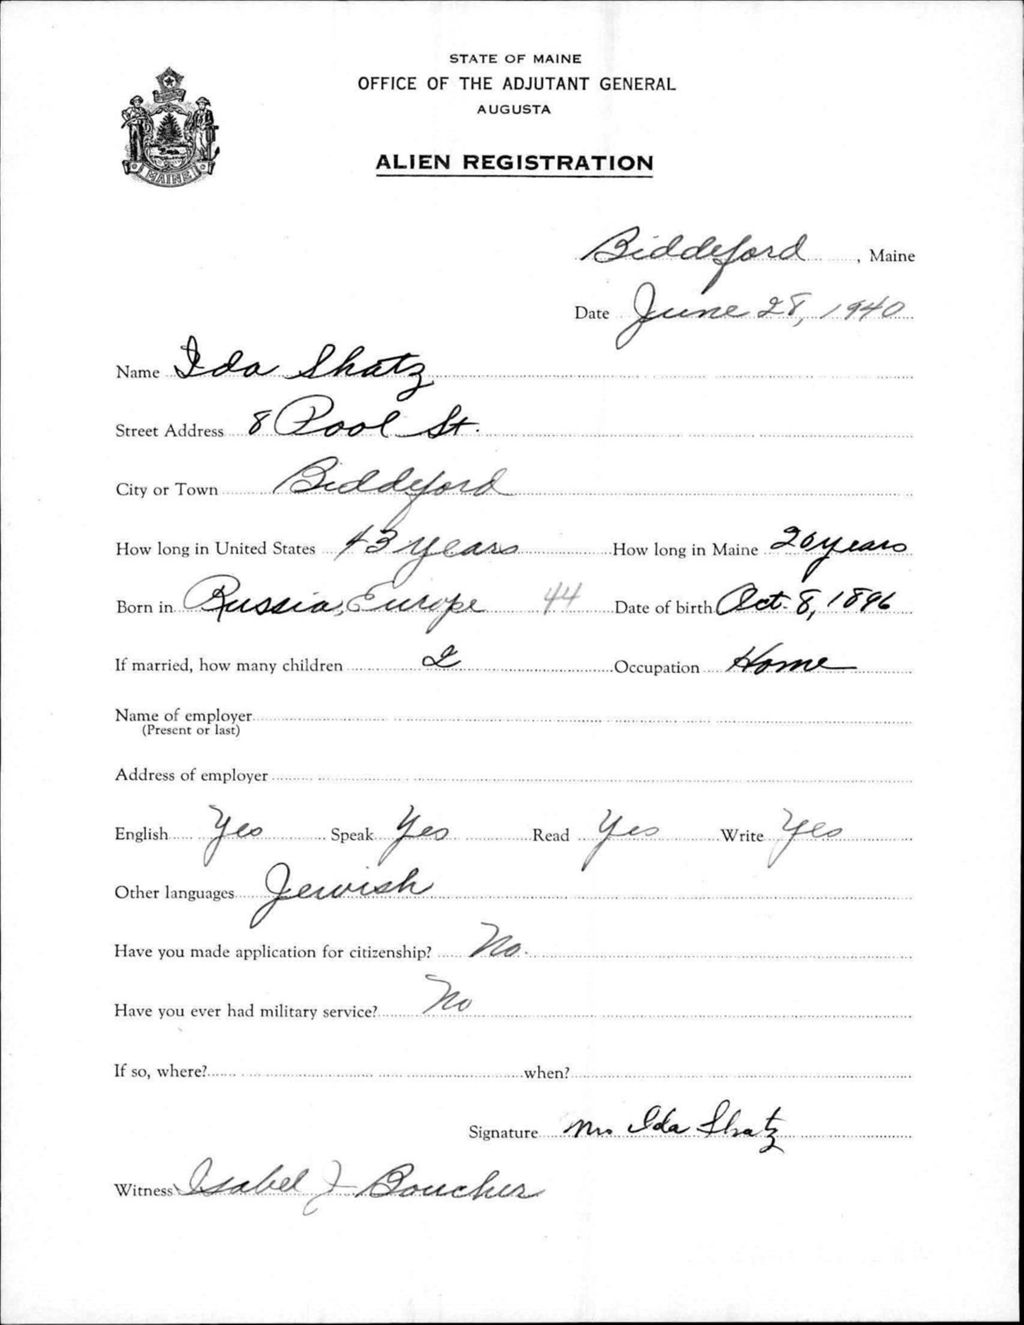 STATE OF MAINE
OFFICE OF THE ADJUTANT GENERAL
AUGUSTA
ALIEN REGISTRATION
MAINE
Biddeford, Maine
Date June 28, 1940
Name Ida Shatz
Street Address 8 Pool St.
City or Town Biddeford
How long in United States 43 years How long in Maine 20 years
Born in Russia, Europe 44 Date of birth Oct. 8, 1896
If married, how many children 2 Occupation Home
Name of employer
(Present or last)
Address of employer
English Yes Speak Yes Read Yes Write Yes
Other languages Jewish
Have you made application for citizenship? No.
Have you ever had military service? No
If so, where? when?
Signature Mrs Ida Shatz
Witness Isabel J Boucher